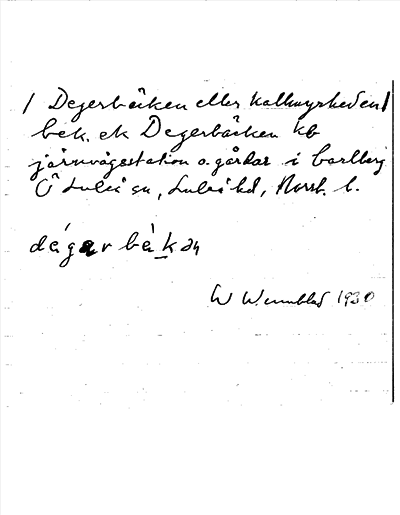 / Degerbäcken eller Kallmyrheden/
bek. ek Degerbäcken kb
järnvägsstation o. gårdar i
Ö Luleå sn, Luleå td, Norrb. l.
dégarbèkan
W Wennblad 1930